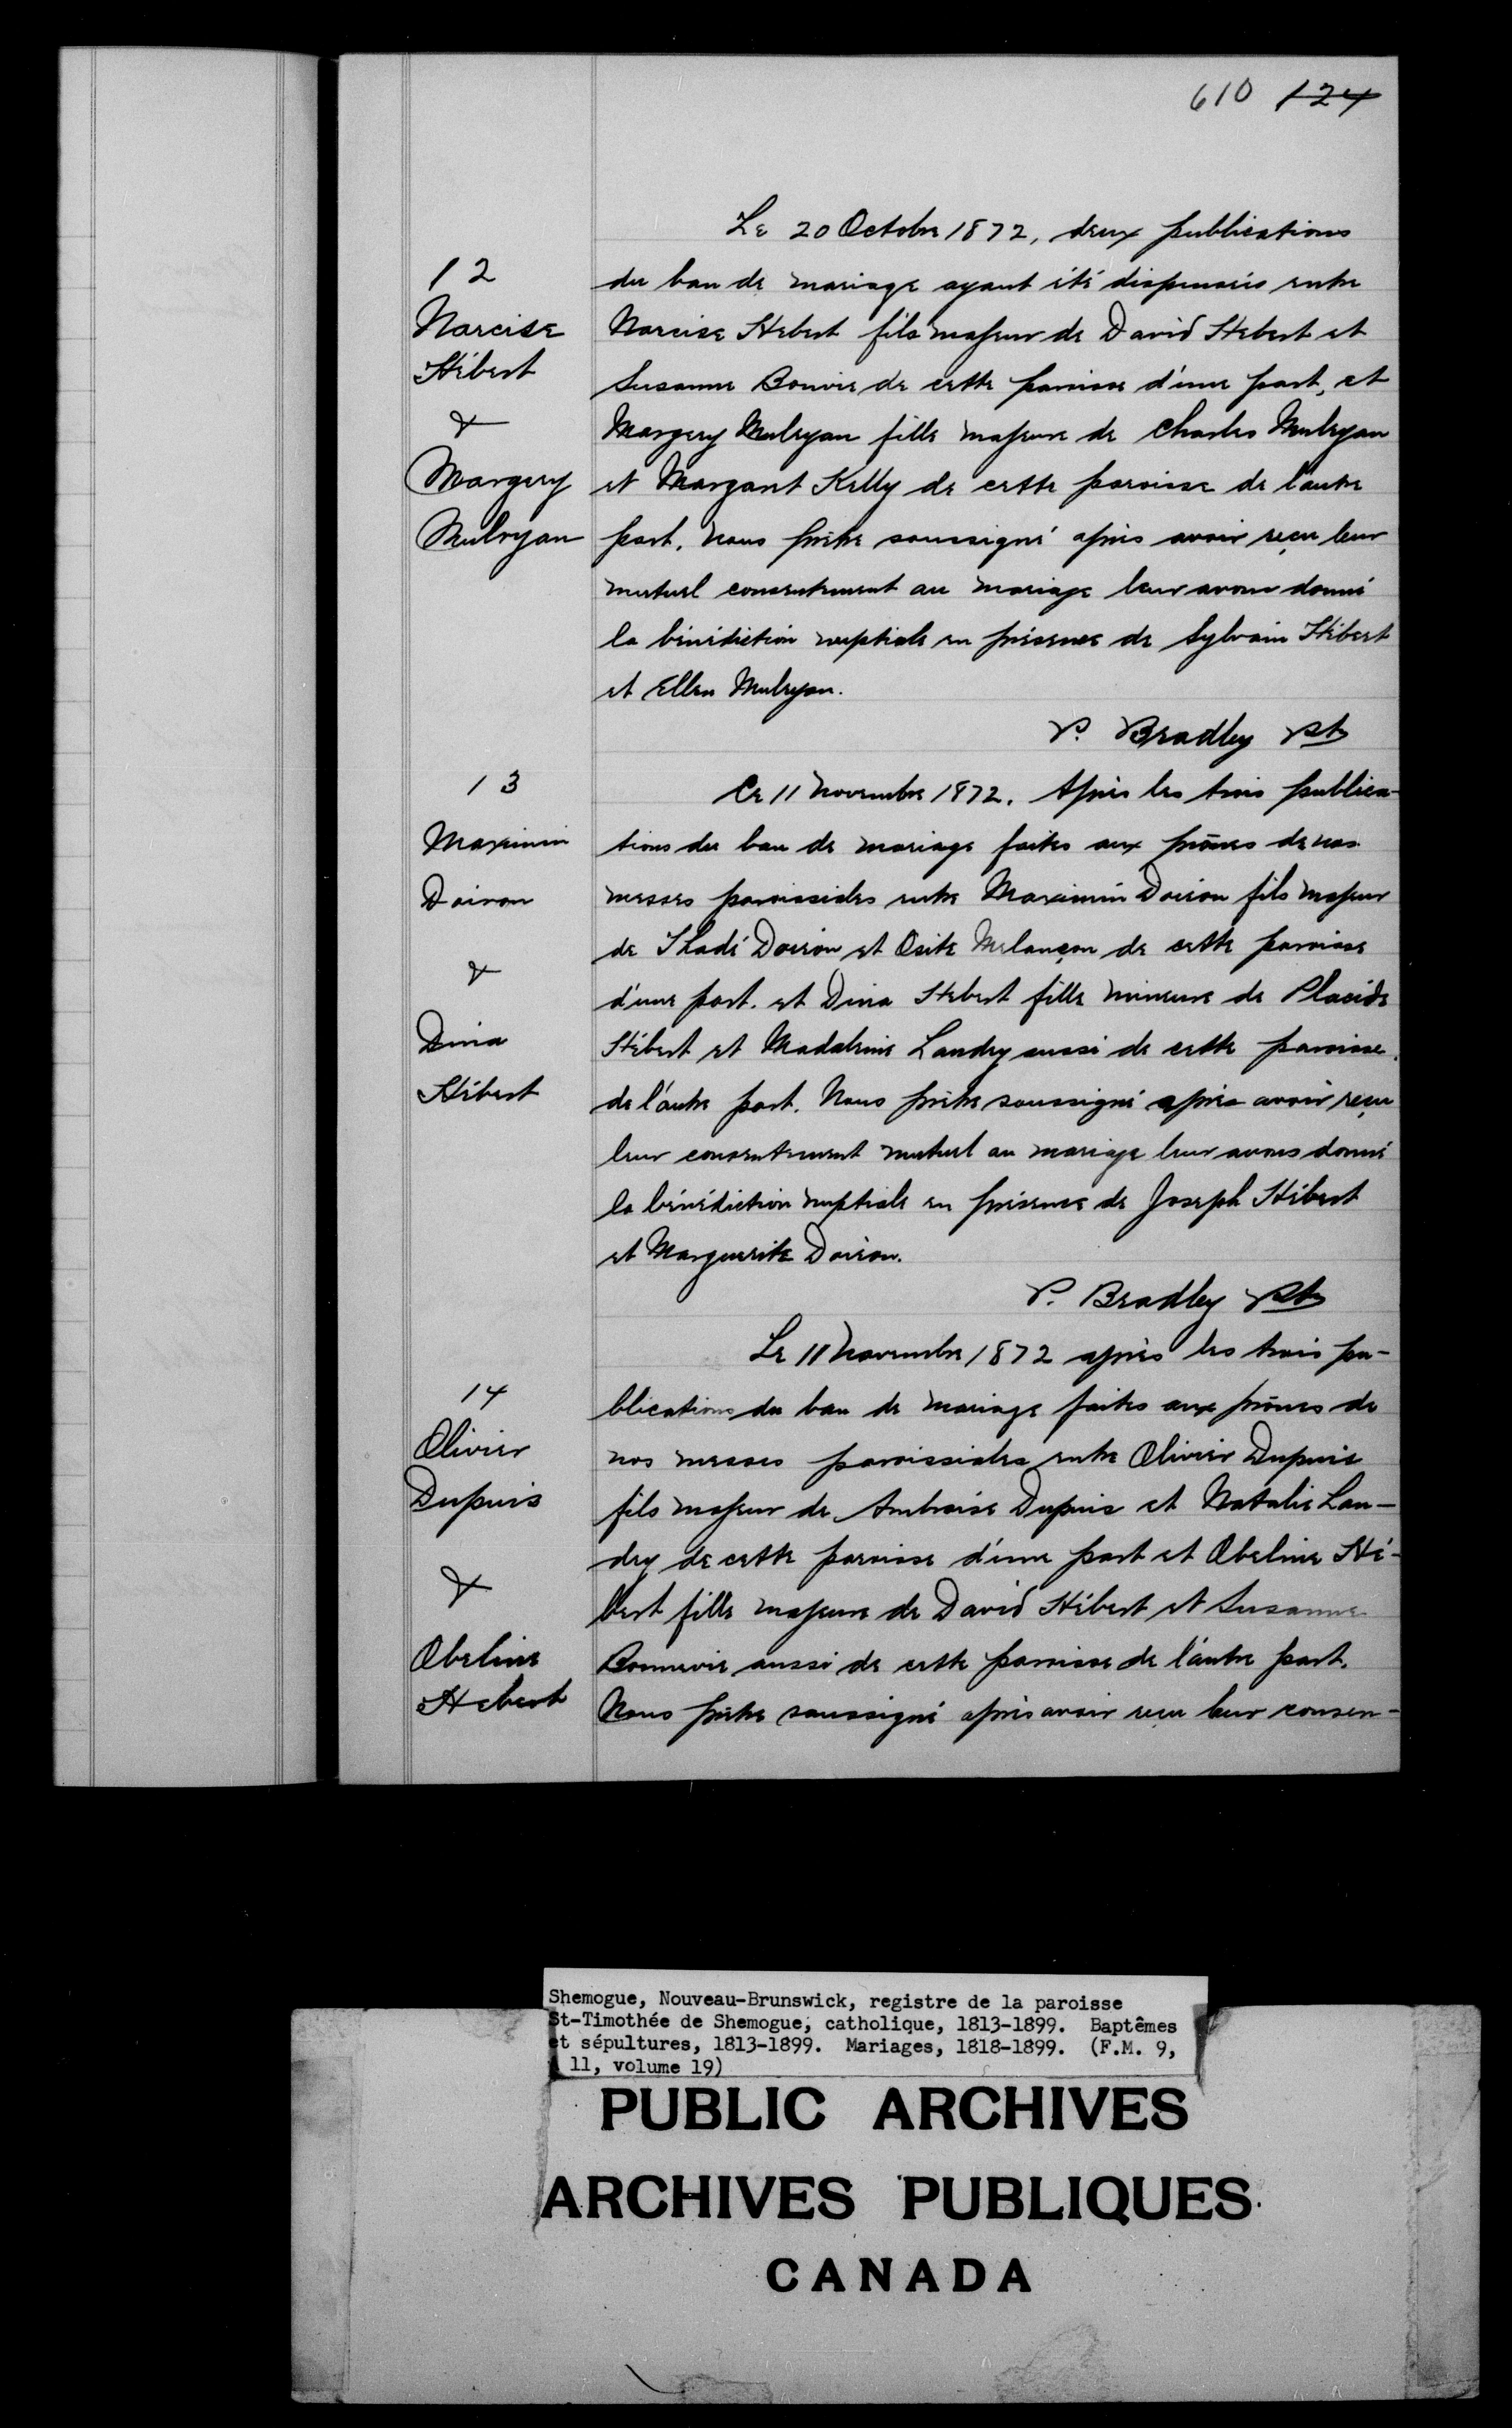 610 124
Le 20 Octobre 1872, deux publications
12
du ban de mariage ayant été dispensées entre
Narcise
Narcise Hebert fils majeur de David Hebert et
Hébert
Susanne Bonvie de cette paroisse d'une part, et
&
Margery Mulryan fille majeure de Charles Mulryan
Margery
et Margaret Kelly de cette paroisse de l'autre
Mulryan
part. Nous prêtre soussigné après avoir reçu leur
mutuel consentement au mariage leur avons donné
la bénédiction nuptiale en présence de Sylvain Hébert
et Ellen Mulryan.
P. Bradley Ptr
13
Ce 11 novembre 1872. Après les trois publica-
Maximin
tions du ban de mariage faites aux prônes de nos
Doiron
messes paroissiales entre Maximin Doiron fils majeur
de Thadé Doiron et Osite Melançon de cette paroisse
&
d'une part. et Dina Hebert fille mineure de Placide
Dina
Hébert et Madeleine Landry aussi de cette paroisse.
Hébert
de l'autre part. Nous prêtre soussigné après avoir reçu
leur consentement mutuel au mariage leur avons donné
la bénédiction nuptiale en présence de Joseph Hébert
et Marguerite Doiron.
P. Bradley Ptr
Le 11 Novembre 1872 après les trois pu-
14
blications du ban de mariage faites aux prônes de
Olivier
nos messes paroissiales entre Olivier Dupuis
Dupuis
fils majeur de Ambroise Dupuis et Natalie Lan-
dry de cette paroisse d'une part et Obeline Hé-
&
bert fille majeure de David Hébert et Susanne
Obeline
Bonnevie aussi de cette paroisse de l'autre part.
Hebert
Nous prêtre soussigné après avoir reçu leur consen-
Shemogue, Nouveau-Brunswick, registre de la paroisse
St-Timothée de Shemogue, catholique, 1813-1899. Baptêmes
et sépultures, 1813-1899. Mariages, 1818-1899. (F.M. 9,
11, volume 19)
PUBLIC ARCHIVES
ARCHIVES PUBLIQUES
CANADA